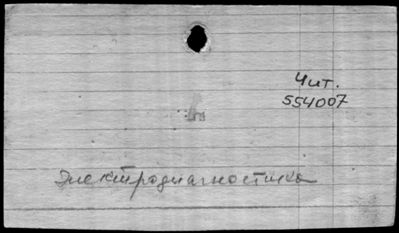 Чит.
554007
Электродиагностика